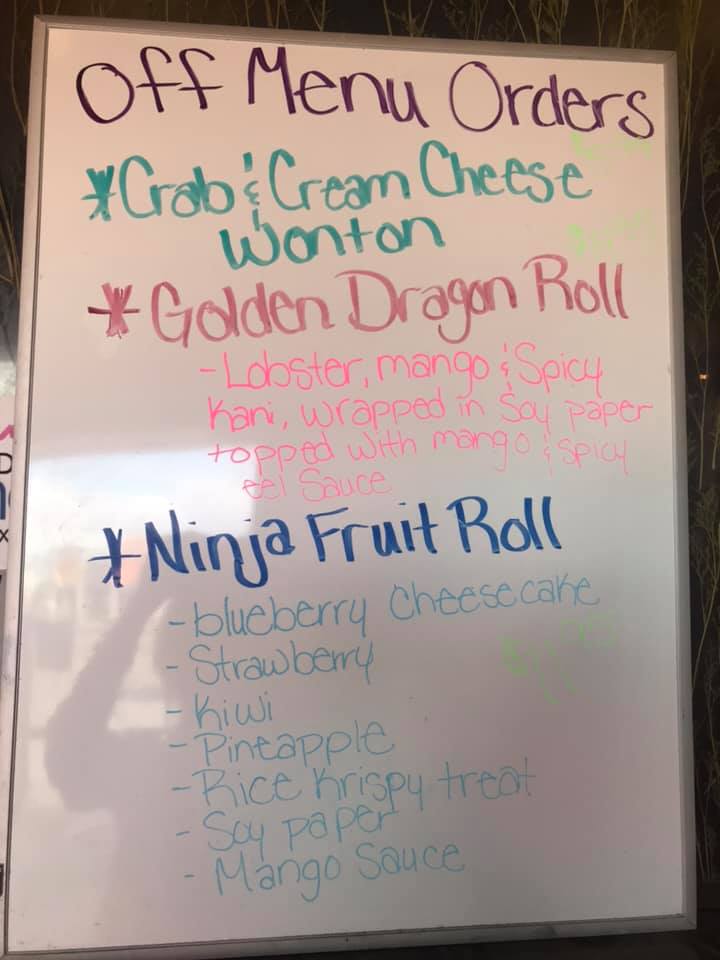 Off Menu Orders
* Crab & Cream Cheese
Wonton
* Golden Dragon Roll
- Lobster, mango & Spicy
Kani, wrapped in Soy paper
topped with mango & spicy
eel Sauce
* Ninja Fruit Roll
- blueberry Cheesecake
- Strawberry
- Kiwi
- Pineapple
- Rice Krispy treat
- Soy paper
- Mango Sauce